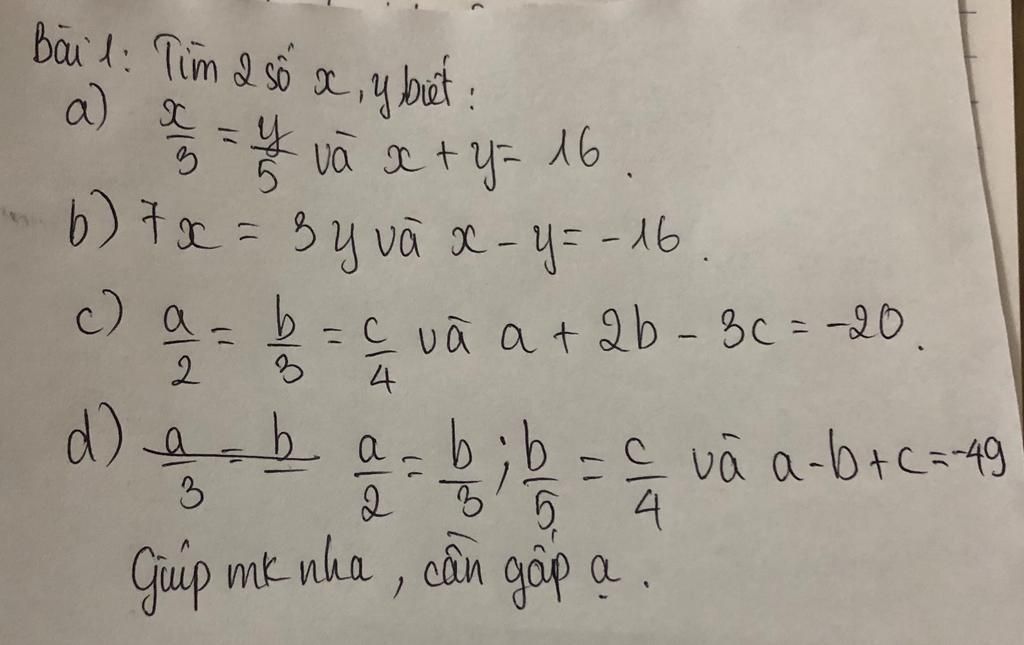 Bài 1: Tìm 2 số x, y biết:
a) x/3 = y/5 và x + y = 16.
b) 7x = 3y và x - y = -16.
c) a/2 = b/3 = c/4 và a + 2b - 3c = -20.
d) ~~a/3 = b/~~ a/2 = b/3 ; b/5 = c/4 và a - b + c = -49
Giúp mk nha, cần gấp ạ.